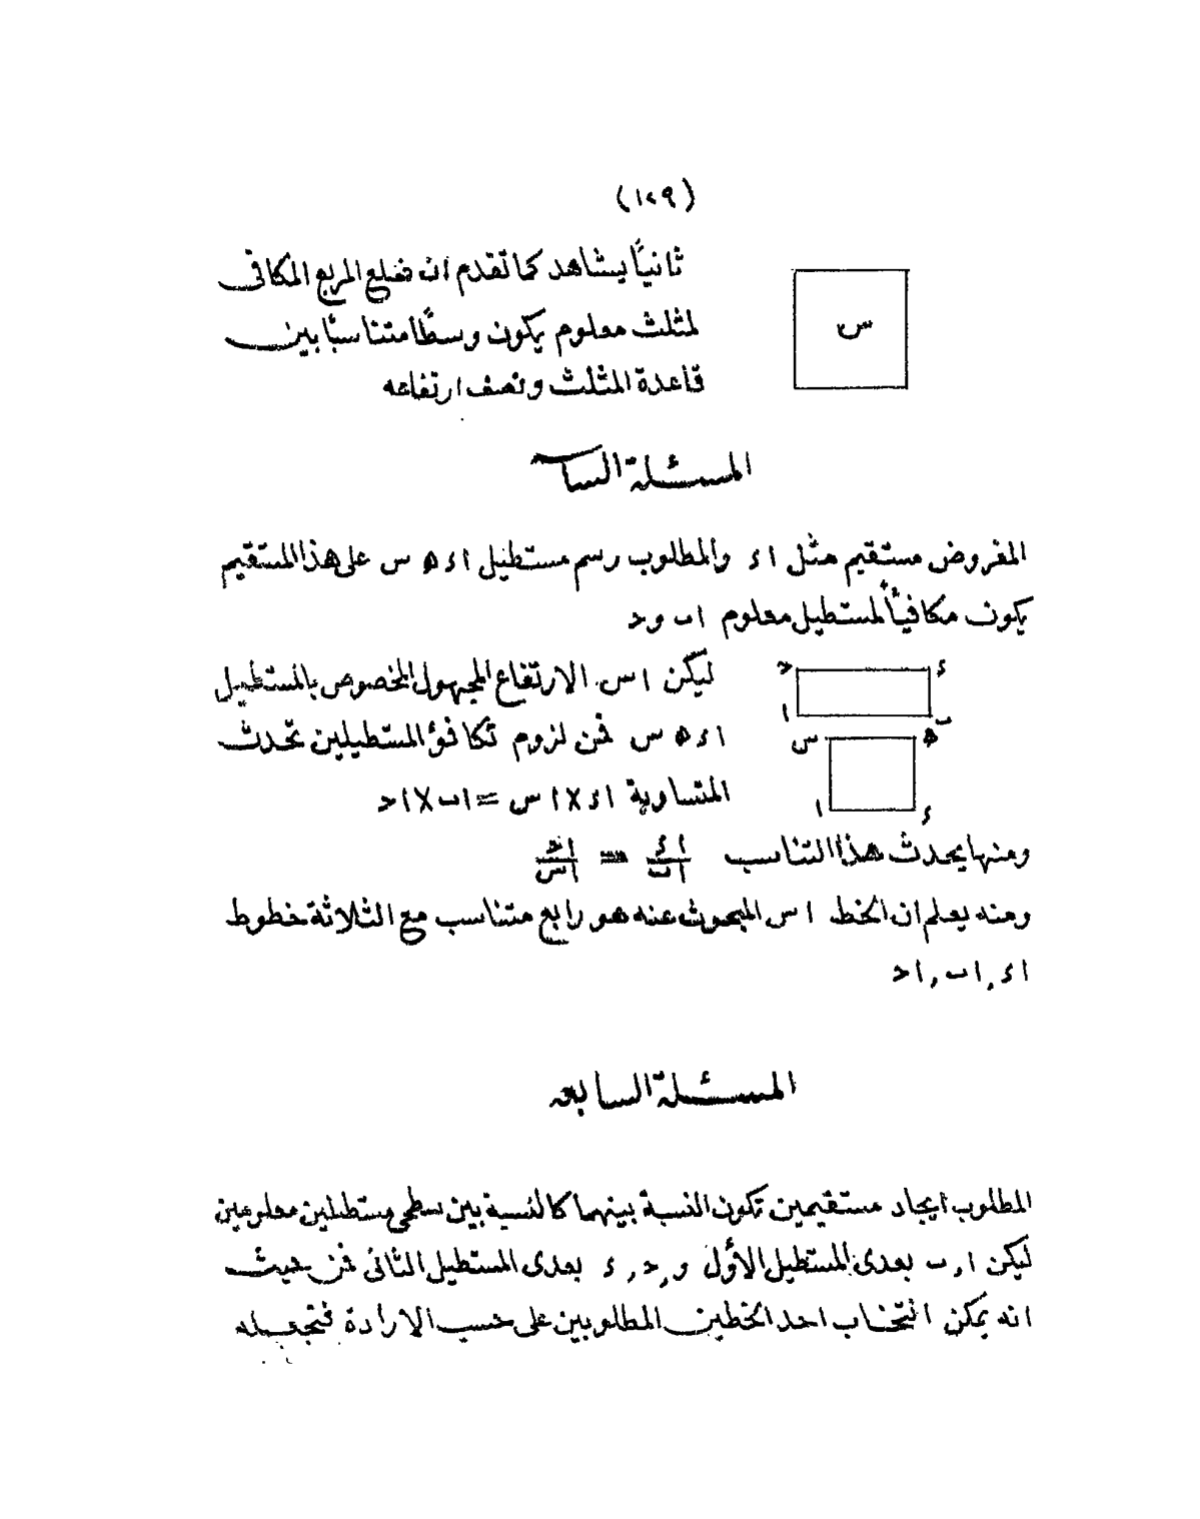 (١٢٩)
ثانيًا يشاهد كما تقدم ان ضلع المربع المكافى
لمثلث معلوم يكون وسطًا متناسبًا بين
قاعدة المثلث ونصف ارتفاعه
س
المسئلة السا
المفروض مستقيم مثل ا ء والمطلوب رسم مستطيل ا ء ه س على هذا المستقيم
يكون مكافيأ لمستطيل معلوم ا ب و د
ليكن ا س الارتفاع المجهول المخصوص بالمستطيل
ا ء ه س فمن لزوم تكافؤ المستطيلين تحدث
المتساوية ا ء × ا س = ا ب × ا د
د ء
ا ب
س ه
ا ء
ومنها يحدث هذا التناسب ا ء / ا ب = ا د / ا س
ومنه يعلم ان الخط ا س المبحوث عنه هو رابع متناسب مع الثلاثة خطوط
ا ء , ا ب , ا د
المسئلة السابعه
المطلوب ايجاد مستقيمين تكون النسبة بينهما كالنسبة بين سطحى مستطيلين معلومين
ليكن ا , ب بعدى المستطيل الأول و , د , ء بعدى المستطيل الثانى فمن حيث
انه يمكن انتخاب احد الخطين المطلوبين على حسب الارادة فتجعله